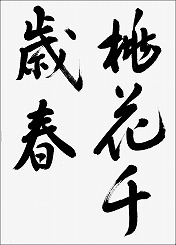 桃花千
歳春